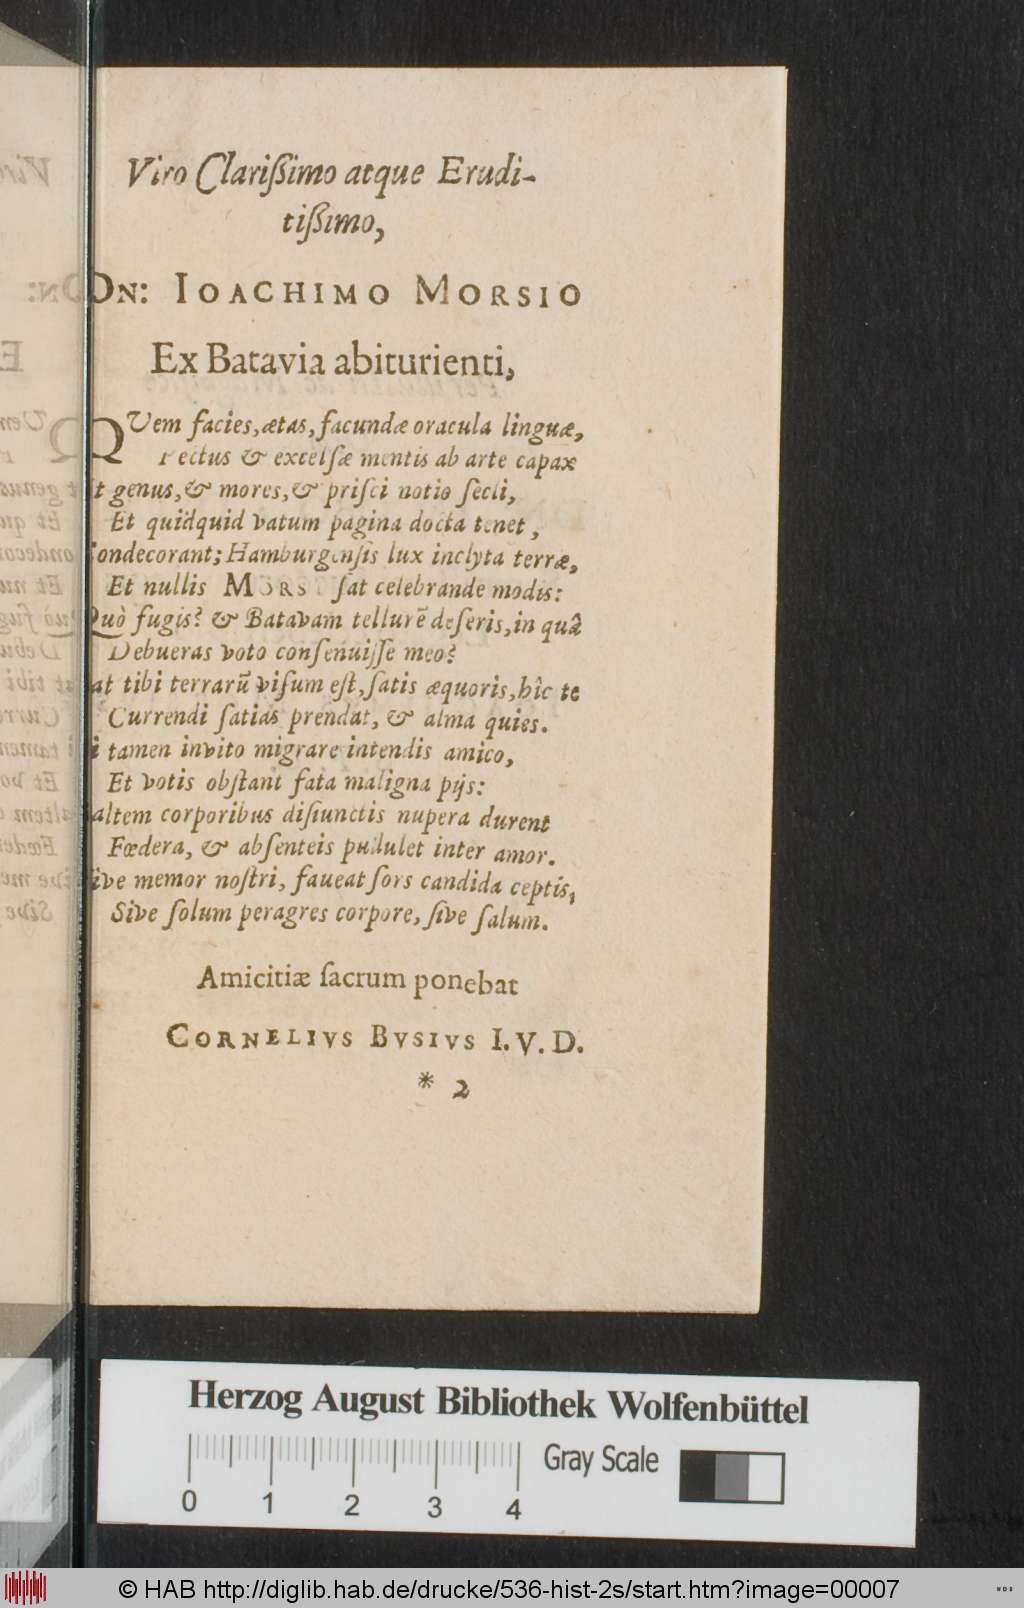 Viro Clarißimo atque Erudi-
tißimo,
DN: IOACHIMO MORSIO
Ex Batavia abiturienti,
QVem facies, ætas, facundæ oracula linguæ,
Pectus & excelsæ mentis ab arte capax
t genus, & mores, & prisci notio secli,
Et quidquid vatum pagina docta tenet,
Condecorant; Hamburgensis lux inclyta terræ,
Et nullis MORSI sat celebrande modis:
Quò fugis? & Batavam tellurē deseris, in quâ
Debueras voto consenuisse meo?
at tibi terrarū visum est, satis æquoris, hîc te
Currendi satias prendat, & alma quies.
i tamen invito migrare intendis amico,
Et votis obstant fata maligna pijs:
altem corporibus disiunctis nupera durent
Fœdera, & absenteis pullulet inter amor.
ive memor nostri, faveat sors candida ceptis,
Sive solum peragres corpore, sive salum.
Amicitiæ sacrum ponebat
CORNELIVS BVSIVS I.V.D.
* 2
Herzog August Bibliothek Wolfenbüttel
0 1 2 3 4
Gray Scale
© HAB http://diglib.hab.de/drucke/536-hist-2s/start.htm?image=00007